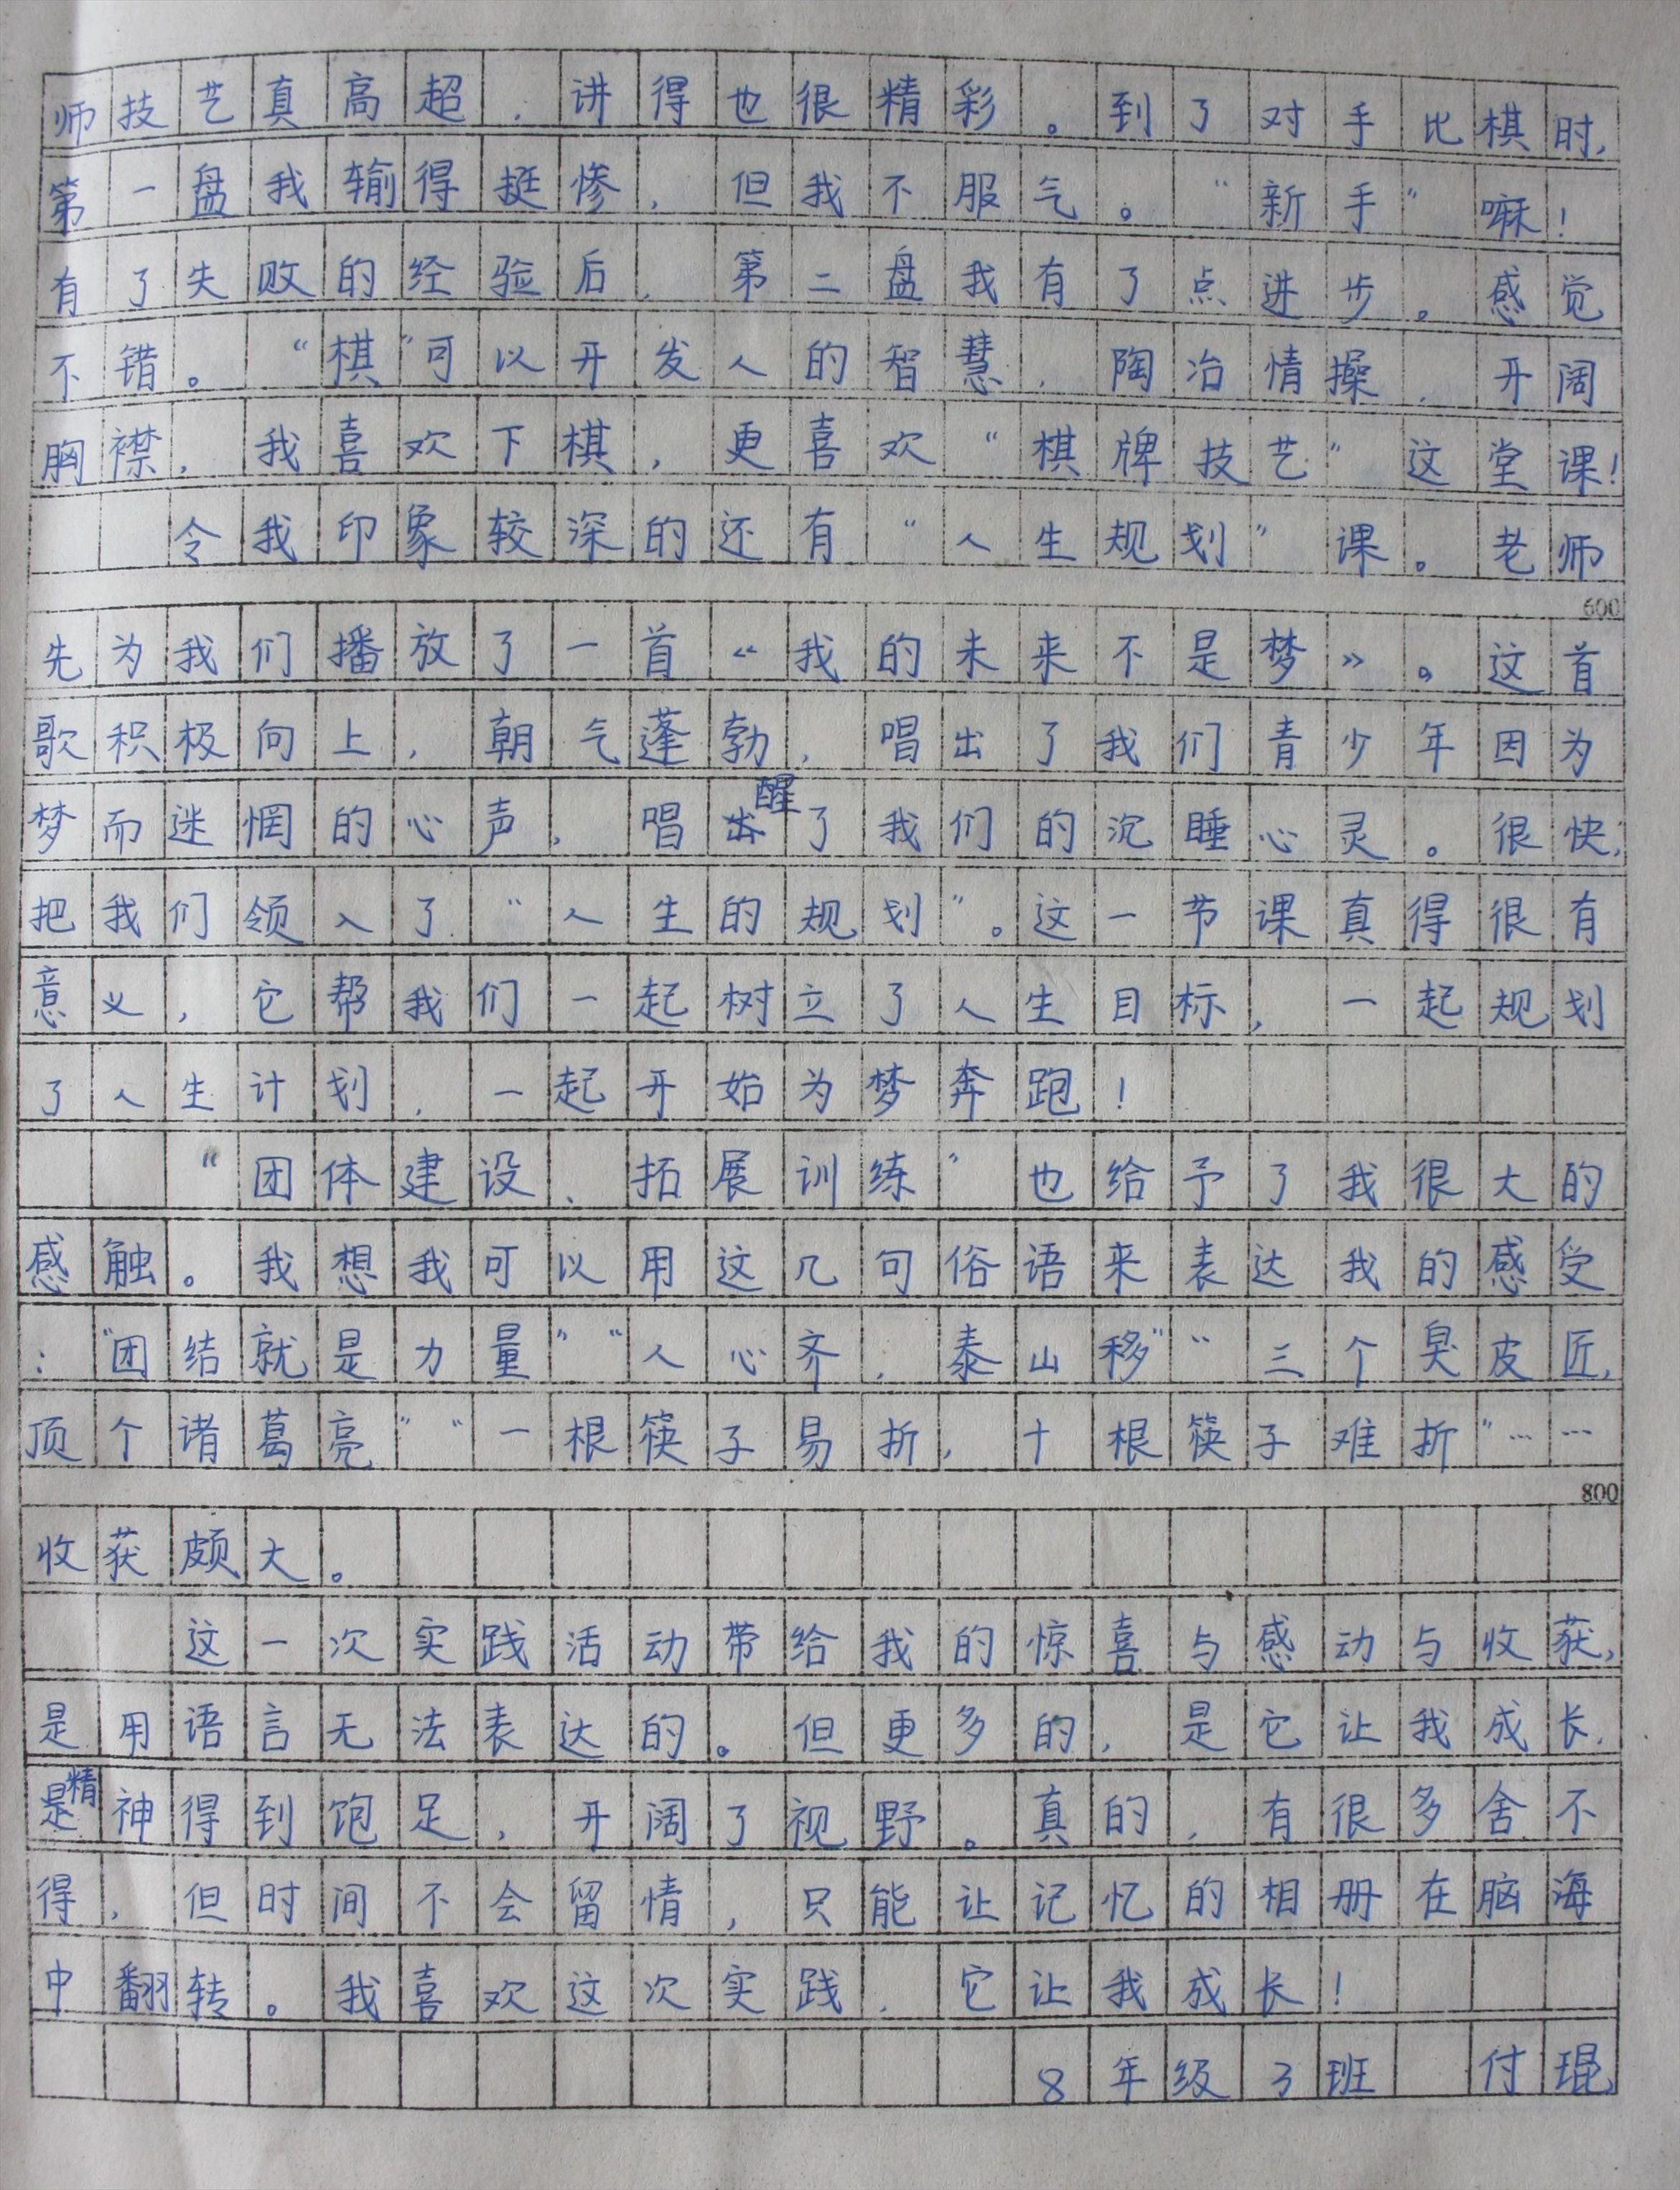 师技艺真高超，讲得也很精彩。到了对手比棋时，
第一盘我输得挺惨，但我不服气。“新手”嘛！
有了失败的经验后，第二盘我有了点进步。感觉
不错。“棋”可以开发人的智慧，陶冶情操，开阔
胸襟，我喜欢下棋，更喜欢“棋牌技艺”这堂课！
令我印象较深的还有“人生规划”课。老师
600
先为我们播放了一首《我的未来不是梦》。这首
歌积极向上，朝气蓬勃，唱出了我们青少年因为
梦而迷惘的心声，唱醒了我们的沉睡心灵。很快，
把我们领入了“人生的规划”。这一节课真得很有
意义，它帮我们一起树立了人生目标，一起规划
了人生计划，一起开始为梦奔跑！
“团体建设、拓展训练”也给予了我很大的
感触。我想我可以用这几句俗语来表达我的感受
：“团结就是力量”“人心齐，泰山移”“三个臭皮匠，
顶个诸葛亮”“一根筷子易折，十根筷子难折”……
800
收获颇大。
这一次实践活动带给我的惊喜与感动与收获，
是用语言无法表达的。但更多的，是它让我成长，
是精神得到饱足，开阔了视野。真的，有很多舍不
得，但时间不会留情，只能让记忆的相册在脑海
中翻转。我喜欢这次实践，它让我成长！
8年级3班 付琨